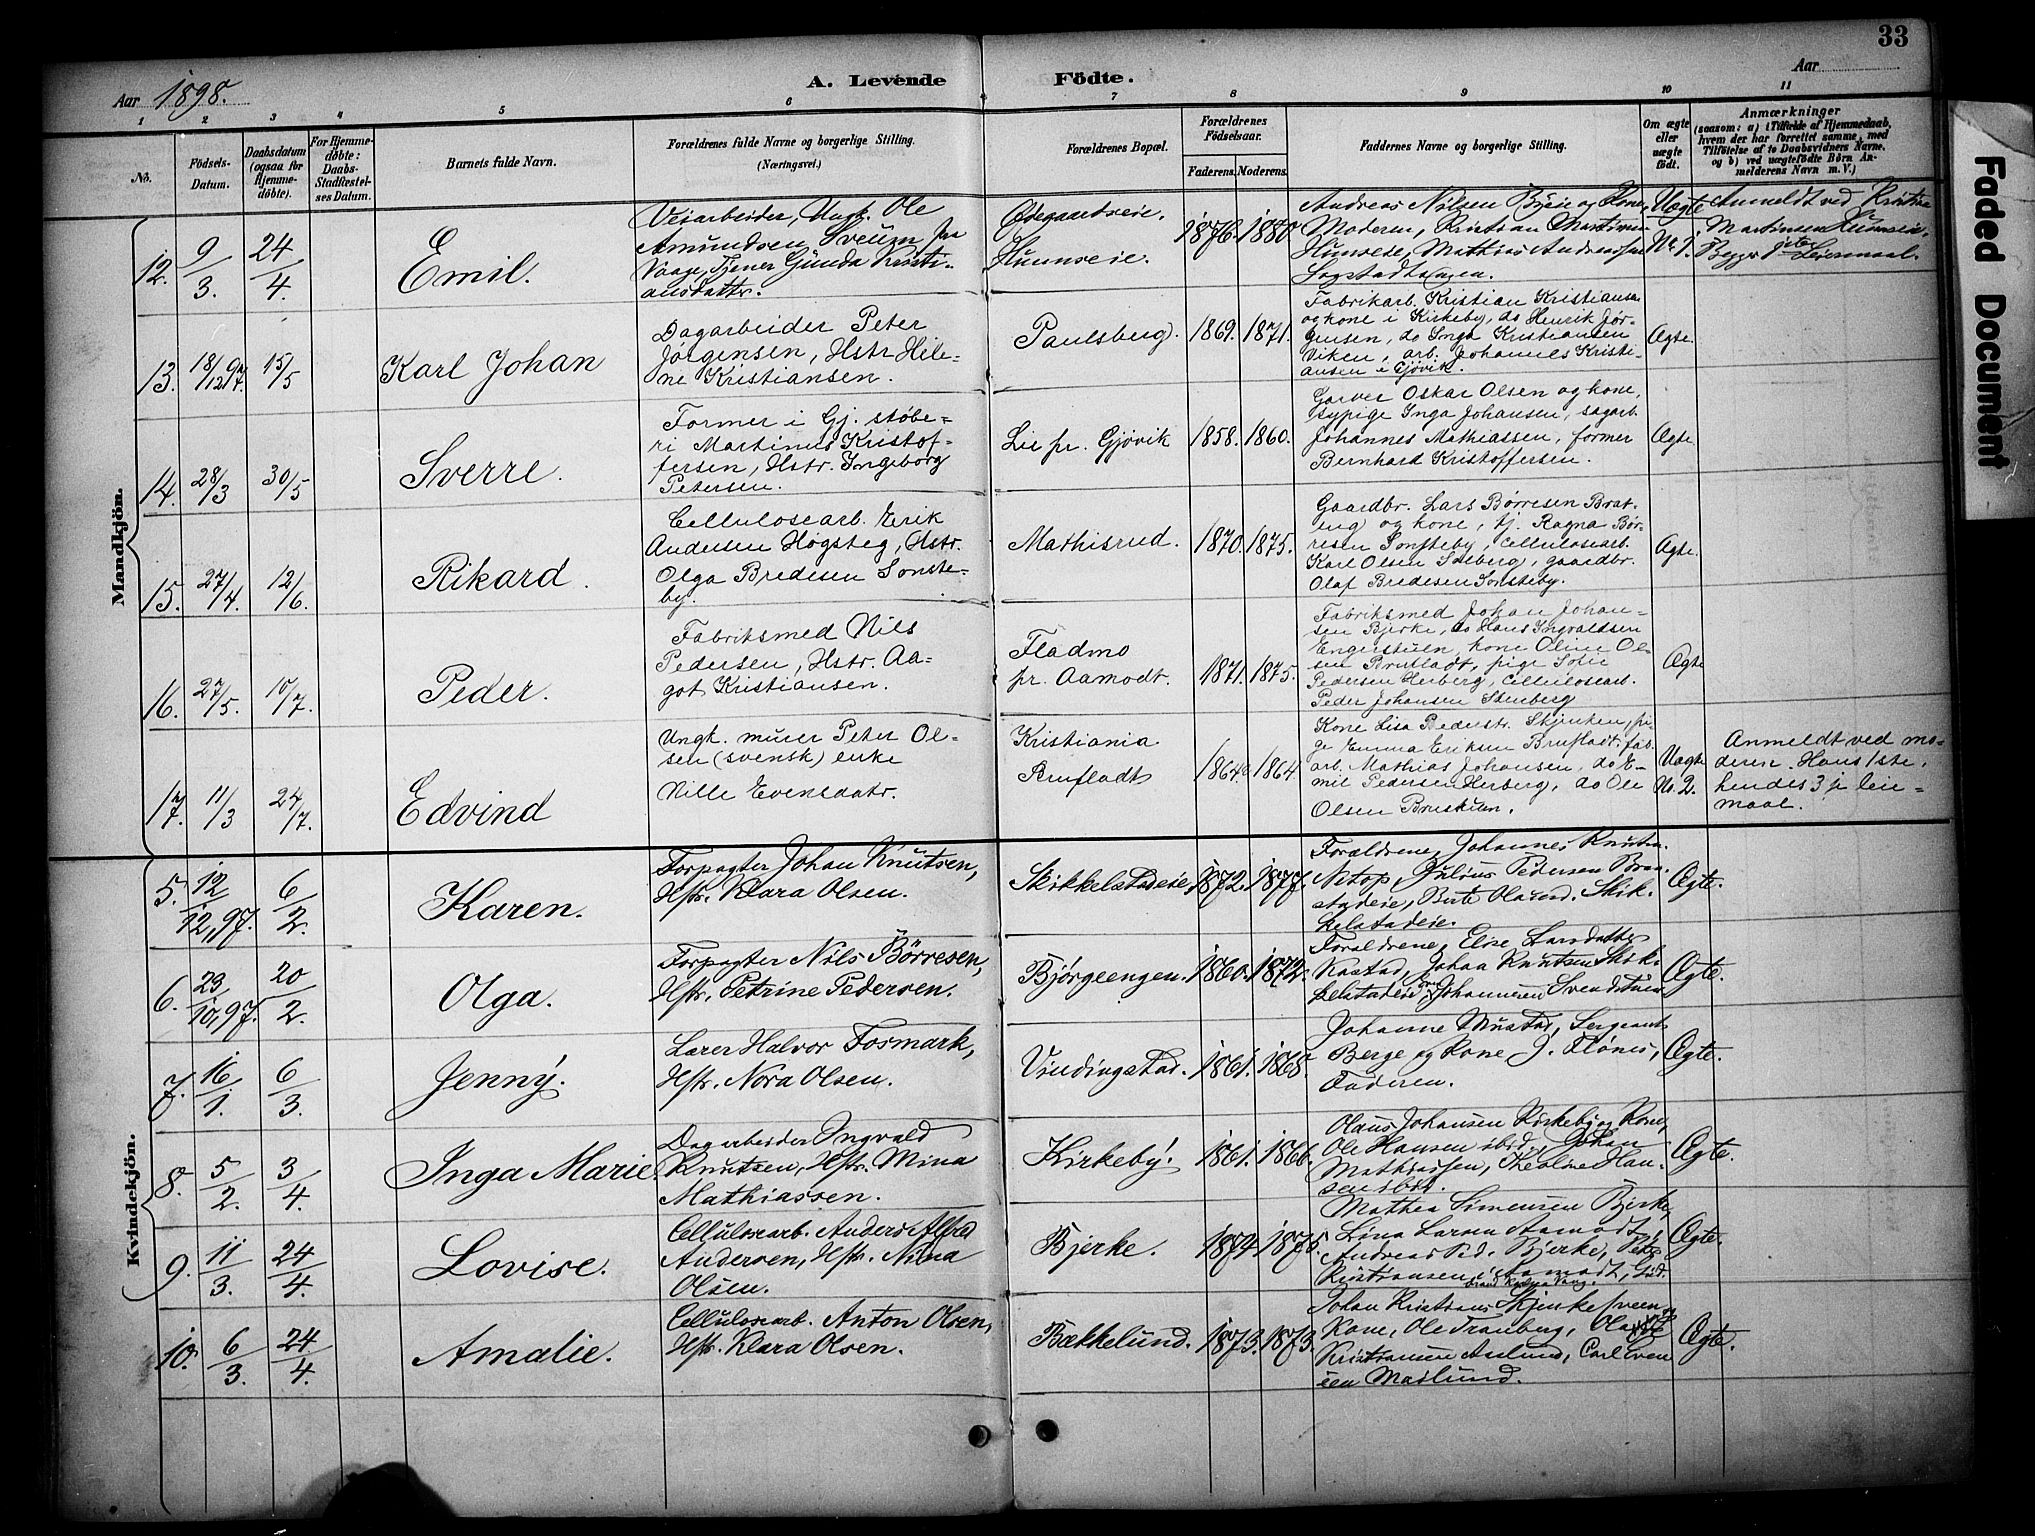 33
Aar 1898.
A. Levende Födte.
Aar
1 2 3 4 5 6 7 8 9 10 11
No.
Födsels-Datum.
Daabsdatum (ogsaa for Hjemmedøbte).
For Hjemmedøbte: Daabs-Stadfæstelses Datum.
Barnets fulde Navn.
Forældrenes fulde Navne og borgerlige Stilling.
(Næringsvei.)
Forældrenes Bopæl.
Forældrenes Födselsaar.
Faderens. Moderens.
Faddernes Navne og borgerlige Stilling.
Om ægte eller uægte födt.
Anmærkninger
(saasom: a) i Tilfælde af Hjemmedaab, hvem der har forrettet samme, med Tilföielse af to Daabsvidners Navne, og b) ved uægtefödte Börn Anmelderens Navn m. V.)
Mandkjön.
12. 9/3. 24/4. Emil.
Veiarbeider, Ungk. Ole
Amundsen Sveum fra
Vaage, Tjener Gunda Kristi-
ansdatter.
Ødegaardseie.
Hunnseie.
1876. 1880
Andreas Nilsen Byeie og Kone,
Moderen, Kristian Martinsen
Hunseie, Mathias Andreassen
Sogstadhagen.
Uægte
No. 1.
Anmeldt ved Kristine
Martinsen Hunnseie.
Begges 1ste Leiermaal.
13. 18/12 97. 15/5 Karl Johan
Dagarbeider Peter
Jørgensen, Hstr Hele-
ne Kristiansen.
Paulsberg. 1869. 1871.
Fabrikarb. Kristian Kristiansen
og kone i Kirkeby, do Henrik Jør-
gensen, do Inga Kristiansen
Viken, arb. Johannes Kristi-
ansen i Gjøvik.
Ægte.
14. 28/3 30/5 Sverre.
Former i Gj. støbe-
ri Martinus Kristof-
fersen, Hstr. Ingeborg
Petersen.
Lie pr. Gjøvik 1858. 1860.
Garver Oskar Olsen og kone,
sypige Inga Johansen, sagarb.
Johannes Mathiassen, former
Bernhard Kristoffersen.
Ægte
15. 27/4. 12/6. Rikard.
Cellulosearb. Erik
Andersen Høgsteg, Hstr.
Olga Bredesen Sønste-
by.
Mathisrud. 1870. 1875.
Gaardbr. Lars Børresen Brat-
eng og kone, tj. Ragna Bør-
resen Sønsteby, cellulosearb.
Karl Olsen Solberg, gaardbr.
Olaf Bredesen Sønsteby.
Ægte.
16. 27/5. 10/7. Peder.
Fabriksmed Nils
Pedersen, Hstr. Aa-
got Kristiansen.
Fladmo
pr. Aamodt. 1871. 1875.
Fabriksmed Johan Johan-
sen Bjerke, do Hans Ingvaldsen
Engerstuen, kone Oline Ol-
sen Brufladt, pige Sofie
Pedersen Herberg, cellulosearb.
Peder Johansen Stenberg
Ægte
17. 11/3 24/7. Edvind
Ungk. murer Peter Ol-
sen (svensk) enke
Nille Evensdatr.
Kristiania
Brufladt 1864 1864
Kone Lisa Pederstr. Skjerken, pi-
ge Emma Eriksen Brufladt, fab.
arb. Mathias Johansen, do E-
mil Pedersen Herberg, do Ole
Olsen Bruskuten.
Uægte
No. 2.
Anmeldt ved mo-
deren. Hans 1ste,
hendes 3je leier-
maal.
Kvindekjön.
5. 12/12,97. 6/2. Karen.
Forpagter Johan Knutsen,
Hstr. Klara Olsen.
Skikkelstadeie, 1872. 1877.
Forældrene, Johannes Knutsen
Netop, Julius Pedersen Braa-
stadeie, Berte Olsend. Skik-
kelstadeie.
Ægte.
6. 23/10,97. 20/2. Olga.
Forpagter Nils Børresen,
Hstr. Petrine Pedersen.
Bjørgeengen. 1860. 1872.
Forældrene, Elise Larsdatter
Kastad, Johan Knutsen Skik-
kelstadeie, Johannesen Svendstuen
Ægte.
7. 16/1. 6/3. Jenny.
Lærer Halvor Fosmark,
Hstr. Nora Olsen.
Vindingstad. 1861. 1868.
Johanne Mustad, Sergeant
Berge og Kone J. Flønes,
Faderen.
Ægte.
8. 5/2. 3/4. Inga Marie.
Dagarbeider Ingvald
Knutsen, Hstr. Mina
Mathiassen.
Kirkeby. 1861. 1866.
Olaus Johansen Kirkeby og Kone,
Ole Hansen ibid, Johan
Mathiassen, Theoline Han-
sen ibid.
Ægte.
9. 11/3. 24/4. Lovise.
Cellulosearb. Anders Alfred
Andersen, Hstr. Nina
Olsen.
Bjerke. 1874. 1875.
Mathea Simensen Bjerke,
Lina Larsen Aamodt,
Andreas Ped. Bjerke, Peter
Kristiansen Aamodt,
Ægte.
10. 6/3. 24/4. Amalie.
Cellulosearb. Anton Olsen,
Hstr. Klara Olsen.
Bækkelund. 1873. 1873.
Johan Kristians. Skjerkesveen og
Kone, Ole Tranberg,
Kristiansen Aaslund, Carl Even-
sen Madlund.
Ægte.
Faded Document